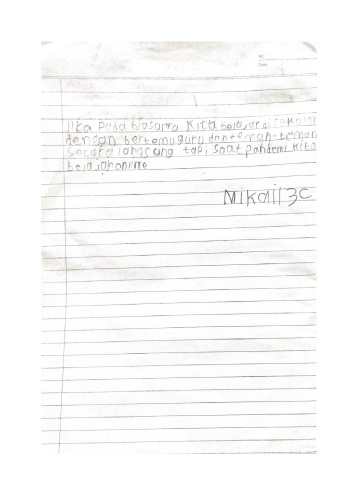 No
Date
Jika Pada biasanya Kita belajar di sekolah
dengan bertemu guru dan teman-teman
Secara langsung tapi saat pandemi kita
belajar online
Mikail 3C